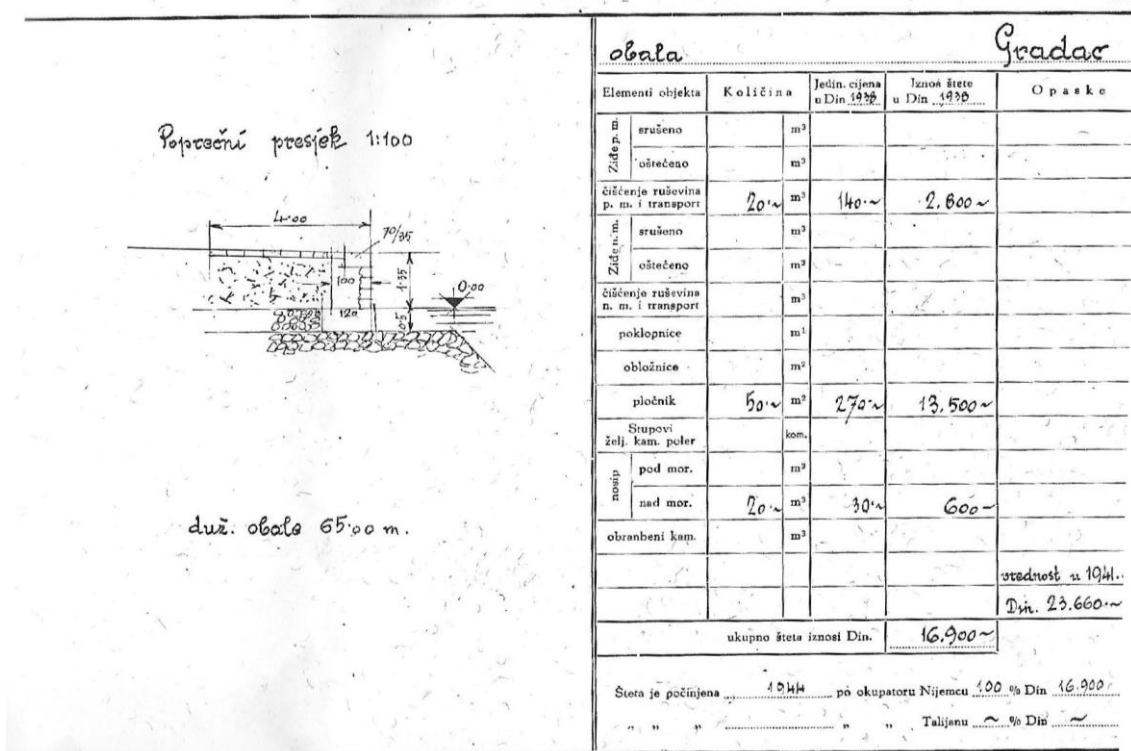 Poprečni presjek 1:100
4.00
70/35
100
1.35
0.00
120
0.5
duž. obale 65.00 m.
obala Gradac
Elementi objekta Količina Jedin. cijena u Din 1938 Iznos štete u Din 1938 Opaske
Ziđe p. m. srušeno m³
oštećeno m³
čišćenje ruševina p. m. i transport 20.~ m³ 140.~ 2.800~
Ziđe n. m. srušeno m³
oštećeno m³
čišćenje ruševina n. m. i transport m³
poklopnice m¹
obložnice m²
pločnik 50.~ m² 270.~ 13.500~
Stupovi želj. kam. poler kom.
nosip pod mor. m³
nad mor. 20.~ m³ 30.~ 600~
obranbeni kam. m³
vrednost u 1941.
Din. 23.660.~
ukupno šteta iznosi Din. 16.900~
Šteta je počinjena 1944 po okupatoru Nijemcu 100 % Din 16.900
„ „ „ „ „ Talijanu ~ % Din ~